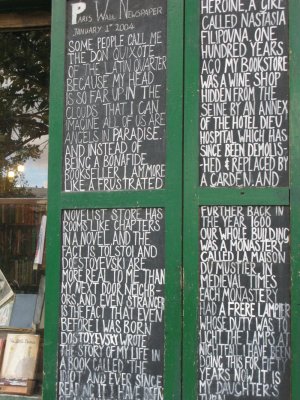 PARIS WALL NEWSPAPER
JANUARY 1ST 2004
SOME PEOPLE CALL ME
THE DON QUIXOTE
OF THE LATIN QUARTER
BECAUSE MY HEAD
IS SO FAR UP IN THE
CLOUDS THAT I CAN
IMAGINE ALL OF US ARE
ANGELS IN PARADISE.
AND INSTEAD OF
BEING A BONAFIDE
BOOKSELLER I AM MORE
LIKE A FRUSTRATED
NOVELIST STORE HAS
ROOMS LIKE CHAPTERS
IN A NOVEL AND THE
FACT IS TOLSTOI AND
DOSTOYEVSKY ARE
MORE REAL TO ME THAN
MY NEXT DOOR NEIGHB-
ORS AND EVEN STRANGER
IS THE FACT THAT EVEN
BEFORE I WAS BORN
DOSTOYEVSKY WROTE
THE STORY OF MY LIFE IN
A BOOK CALLED THE
IDIOT AND EVER SINCE
READING IT I HAVE BEEN
HEROINE, A GIRL
CALLED NASTASIA
FILIPOVNA. ONE
HUNDRED YEARS
AGO MY BOOKSTORE
WAS A WINE SHOP
HIDDEN FROM THE
SEINE BY AN ANNEX
OF THE HOTEL DIEU
HOSPITAL WHICH HAS
SINCE BEEN DEMOLIS-
HED & REPLACED BY
A GARDEN. AND
FURTHER BACK IN
THE YEAR 1600
OUR WHOLE BUILDING
WAS A MONASTERY
CALLED LA MAISON
DU MUSTIER. IN
MEDIEVAL TIMES
EACH MONASTERY
HAD A FRERE LAMPIER
WHOSE DUTY WAS TO
LIGHT THE LAMPS AT
NIGHTFALL. I HAVE BEEN
DOING THIS FOR FIFTY
YEARS NOW IT IS
MY DAUGHTER'S